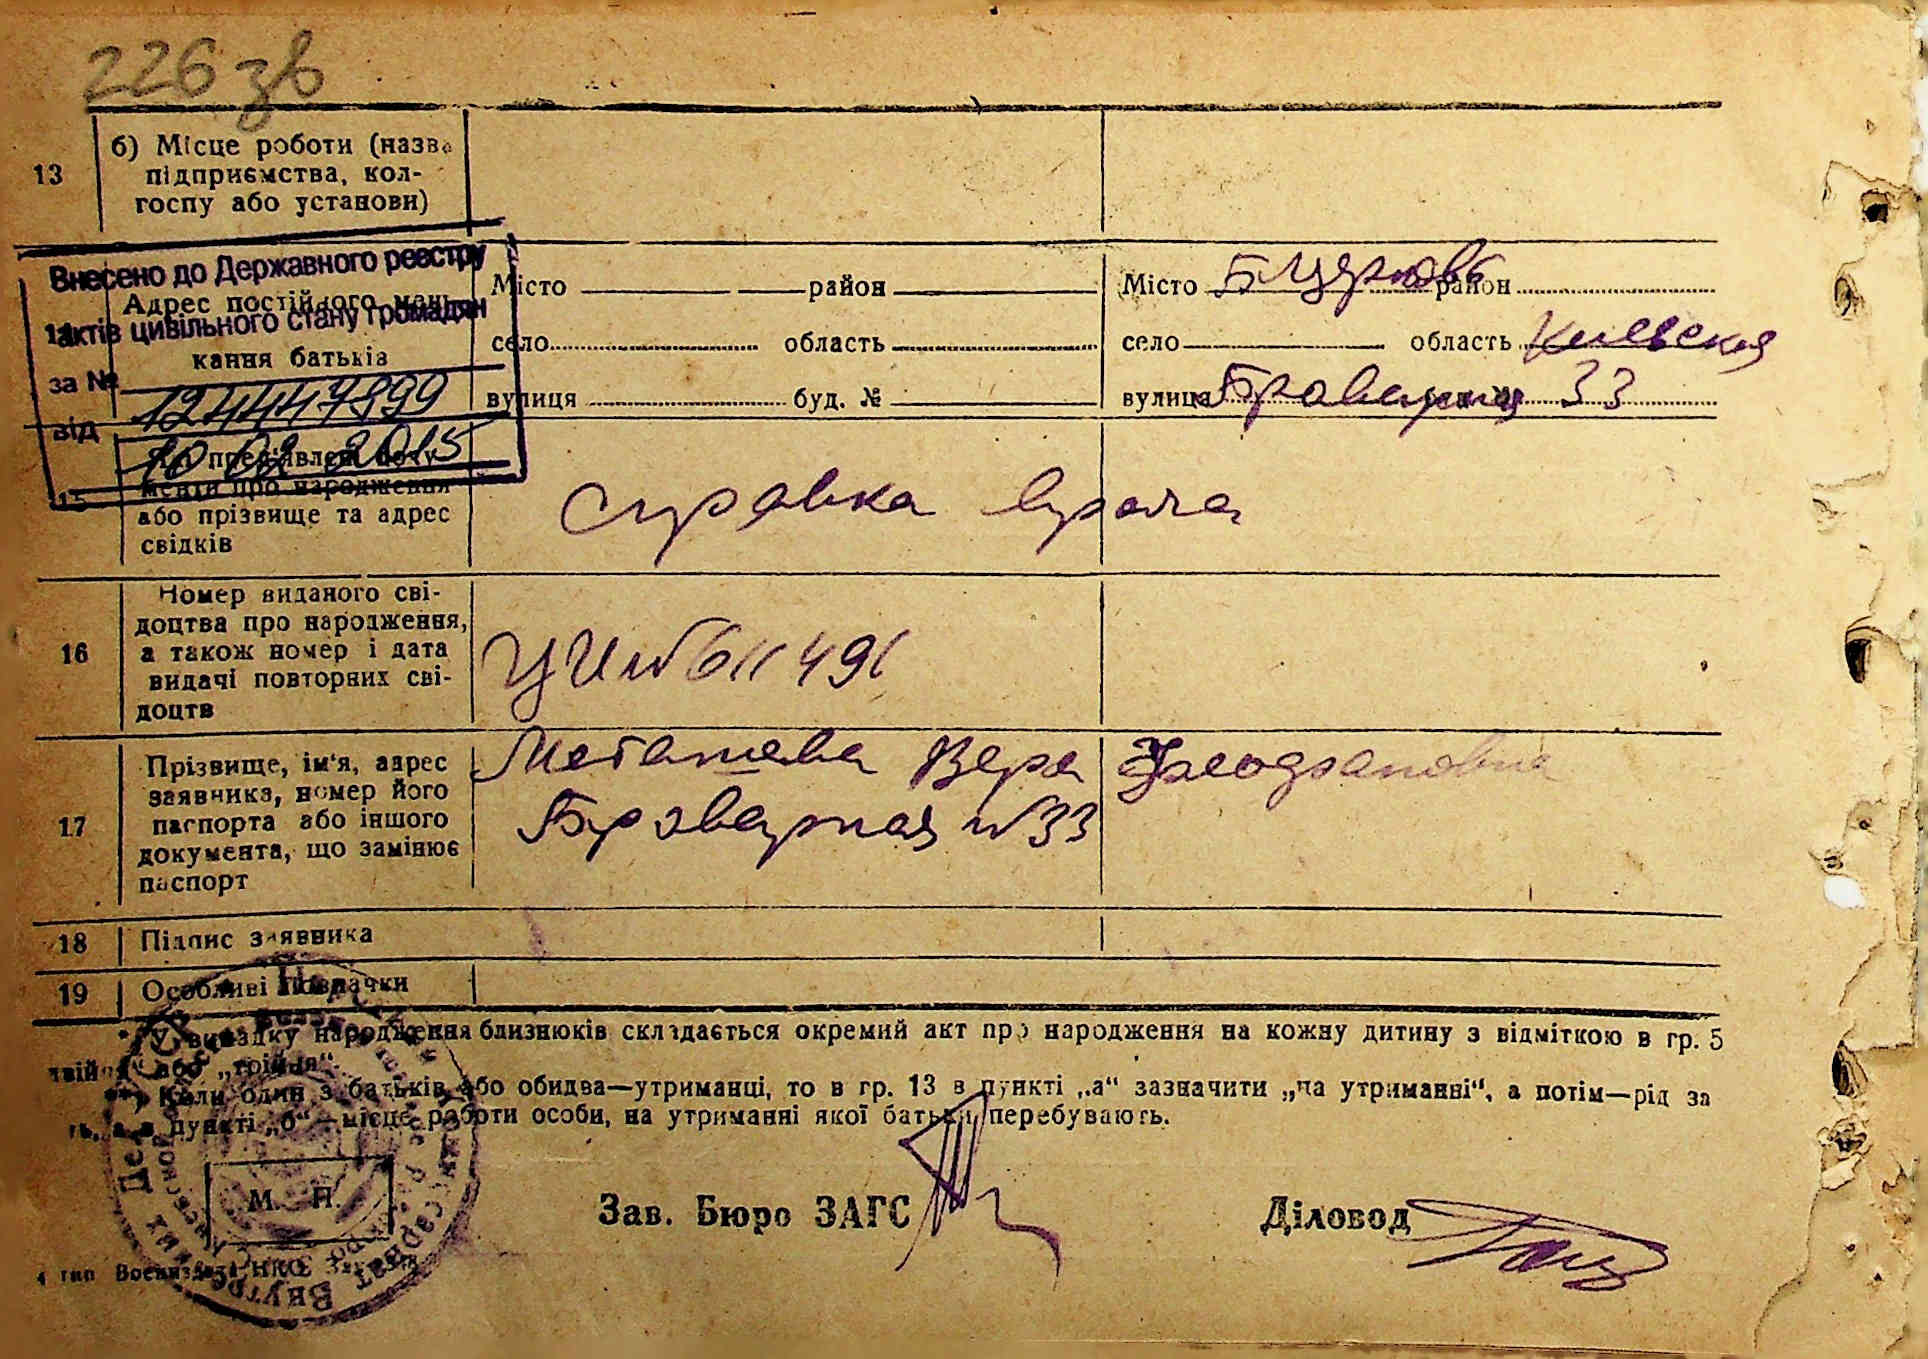 226 зв
13 б) Місце роботи (назва
підприємства, кол-
госпу або установи)
Внесено до Державного реєстру
актів цивільного стану громадян
за № 1244447899
від 10 02 2015
14 Адрес постійного меш-
кання батьків
Місто район
село область
вулиця буд. №
Місто Б Церковь район
село область Киевская
вулиця 33
15 Які пред'явлені доку-
менти про народження
або прізвище та адрес
свідків
Справка врача
16 Номер виданого сві-
доцтва про народження,
а також номер і дата
видачі повторних сві-
доцтв
№ 611491
17 Прізвище, ім'я, адрес
заявника, номер його
паспорта або іншого
документа, що замінює
паспорт
Вера
№ 33
18 Підпис заявника
19 Особливі позначки
*) У випадку народження близнюків складається окремий акт про народження на кожну дитину з відміткою в гр. 5
„двійня“ або „трійня“.
**) Коли один з батьків або обидва—утриманці, то в гр. 13 в пункті „а“ зазначити „на утриманні“, а потім—рід за
в пункті „б“—місце роботи особи, на утриманні якої батьки перебувають.
М. П.
Зав. Бюро ЗАГС
Діловод